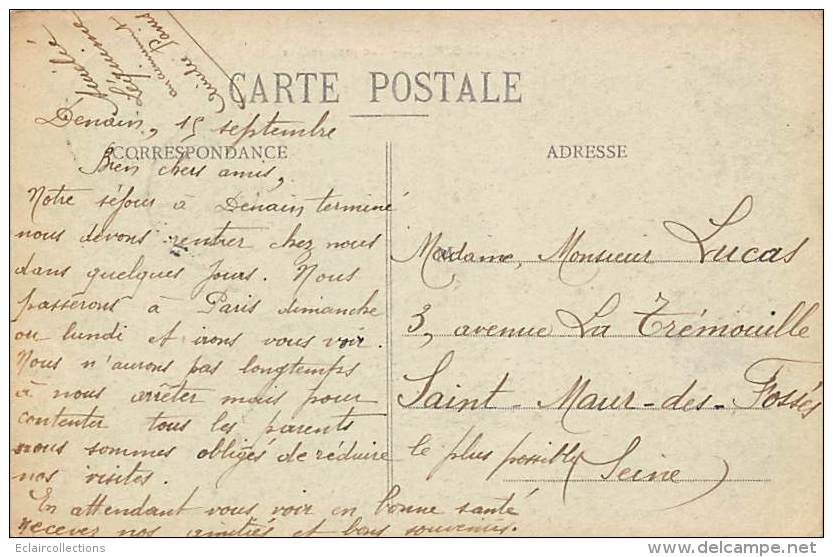 CARTE POSTALE
Denain, 15 septembre
CORRESPONDANCE
Bien chers amis,
Notre séjour à Denain terminé
nous devons rentrer chez nous
dans quelques jours. Nous
passerons à Paris dimanche
ou lundi et irons vous voir.
Nous n'aurons pas longtemps
à nous arrêter mais pour
contenter tous les parents
nous sommes obligés de réduire le plus possible
nos visites.
En attendant vous voir en bonne santé
recevez nos amitiés et bons souvenirs.
ADRESSE
Madame, Monsieur Lucas
3, avenue La Trémouille
Saint-Maur-des-Fossés
(Seine)
Eclaircollections
delcampe.net